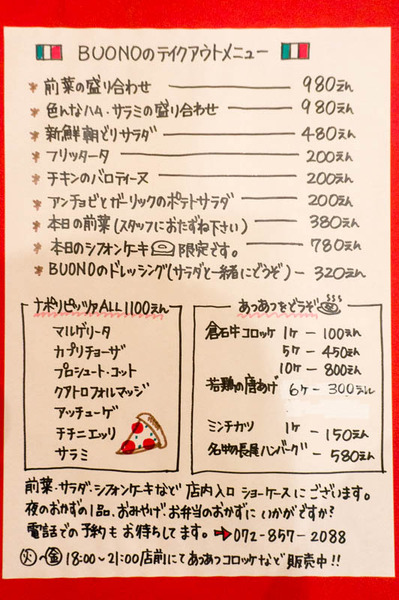 BUONOのテイクアウトメニュー
* 前菜の盛り合わせ 980えん
* 色んなハム・サラミの盛り合わせ 980えん
* 新鮮朝どりサラダ 480えん
* フリッタータ 200えん
* チキンのバロティーヌ 200えん
* アンチョビとガーリックのポテトサラダ 200えん
* 本日の前菜(スタッフにおたずね下さい) 380えん
* 本日のシフォンケーキ 限定です。 780えん
* BUONOのドレッシング(サラダと一緒にどうぞ) 320えん
ナポリピッツァALL1100えん
マルゲリータ
カプリチョーザ
プロシュート・コット
クアトロフォルマッジ
アッチューゲ
チチニエッリ
サラミ
あつあつをどうぞ
倉石牛コロッケ 1ケ 100えん
5ケ 450えん
10ケ 800えん
若鶏の唐あげ 6ケ 300えん
ミンチカツ 1ケ 150えん
名物長尾ハンバーグ 580えん
前菜・サラダ・シフォンケーキなど 店内入口 ショーケースにございます。
夜のおかずの1品、おみやげ、お弁当のおかずに いかがですか?
電話での予約も お待ちしてます。→072-857-2088
火〜金 18:00〜21:00店前にてあつあつコロッケなど 販売中!!